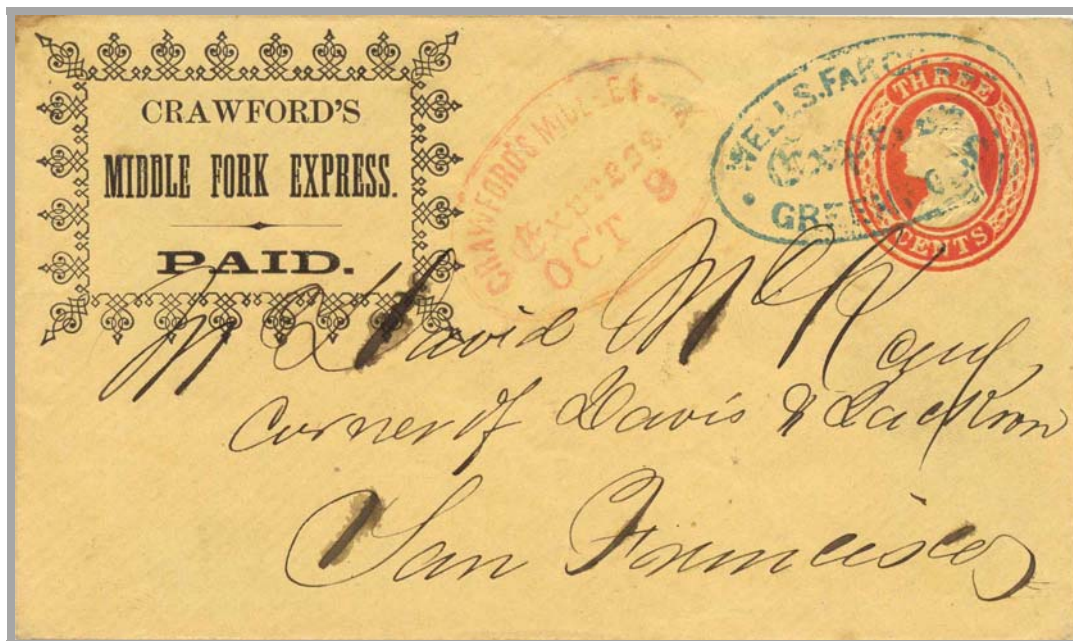 CRAWFORD'S
MIDDLE FORK EXPRESS.
PAID.
CRAWFORD'S MIDDLE F.
Express
OCT 9
WELLS, FARGO
Express
GREEN
THREE
CENTS
Mr David
corner of Davis & Jackson
San Francisco